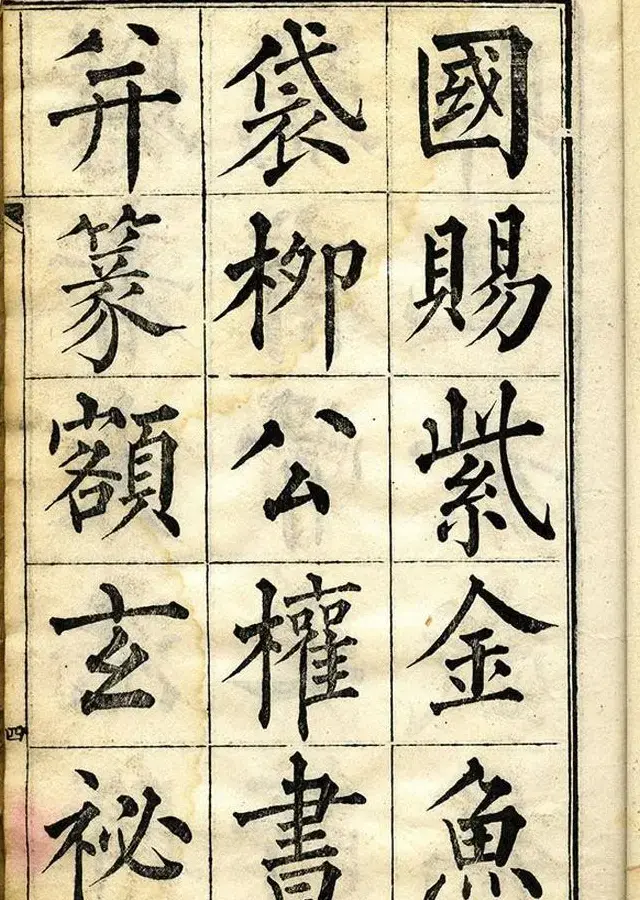 國賜紫金魚
袋柳公權書
并篆額玄祕
四